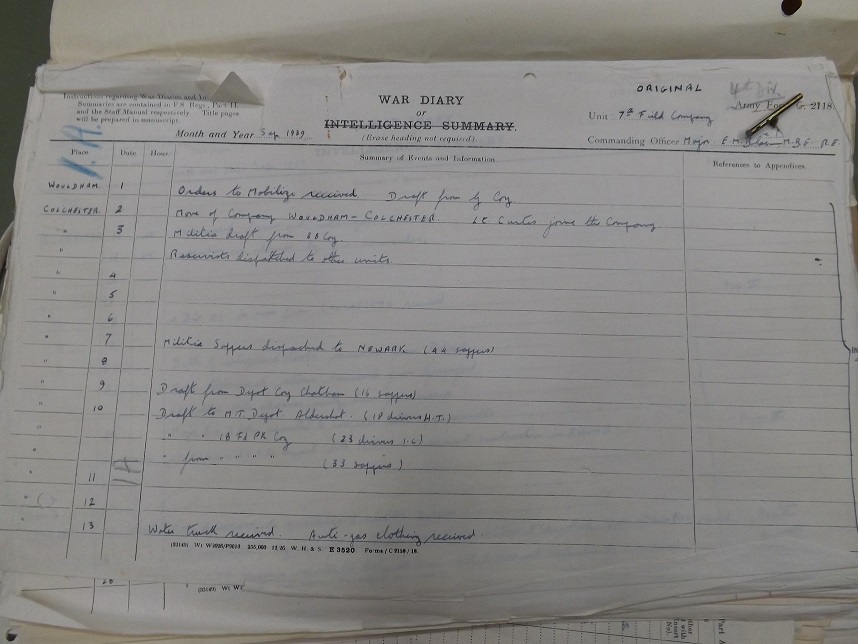 ORIGINAL
4th Div
Instructions regarding War Diaries and
Summaries are contained in F.S. Regs., Part II.
and the Staff Manual respectively. Title pages
will be prepared in manuscript.
WAR DIARY
or
INTELLIGENCE SUMMARY.
(Erase heading not required).
Army Form C. 2118.
Unit 7th Field Company
Month and Year Sep 1939
Commanding Officer Major E.M. M.B.E. R.E.
Place Date Hour Summary of Events and Information References to Appendices
WOULDHAM 1 Orders to Mobilize received. Draft from Coy
COLCHESTER 2 Move of Company WOULDHAM – COLCHESTER. Lt Curtis joins the Company
" 3 Militia draft from Coy.
" Reservists dispatched to other units.
" 4
" 5
" 6
" 7 Militia Sappers dispatched to NEWARK (44 sappers)
" 8
" 9 Draft from Depot Coy Chatham (16 sappers)
" 10 Draft to M.T. Depot Aldershot. (18 drivers M.T.)
" " " 18 Fd PK Coy (23 drivers I.C)
" " from " " " " (33 sappers)
" 11
" 12
" 13 Water truck received. Anti-gas clothing received.
E 3520 Forms/C 2118/18.
20